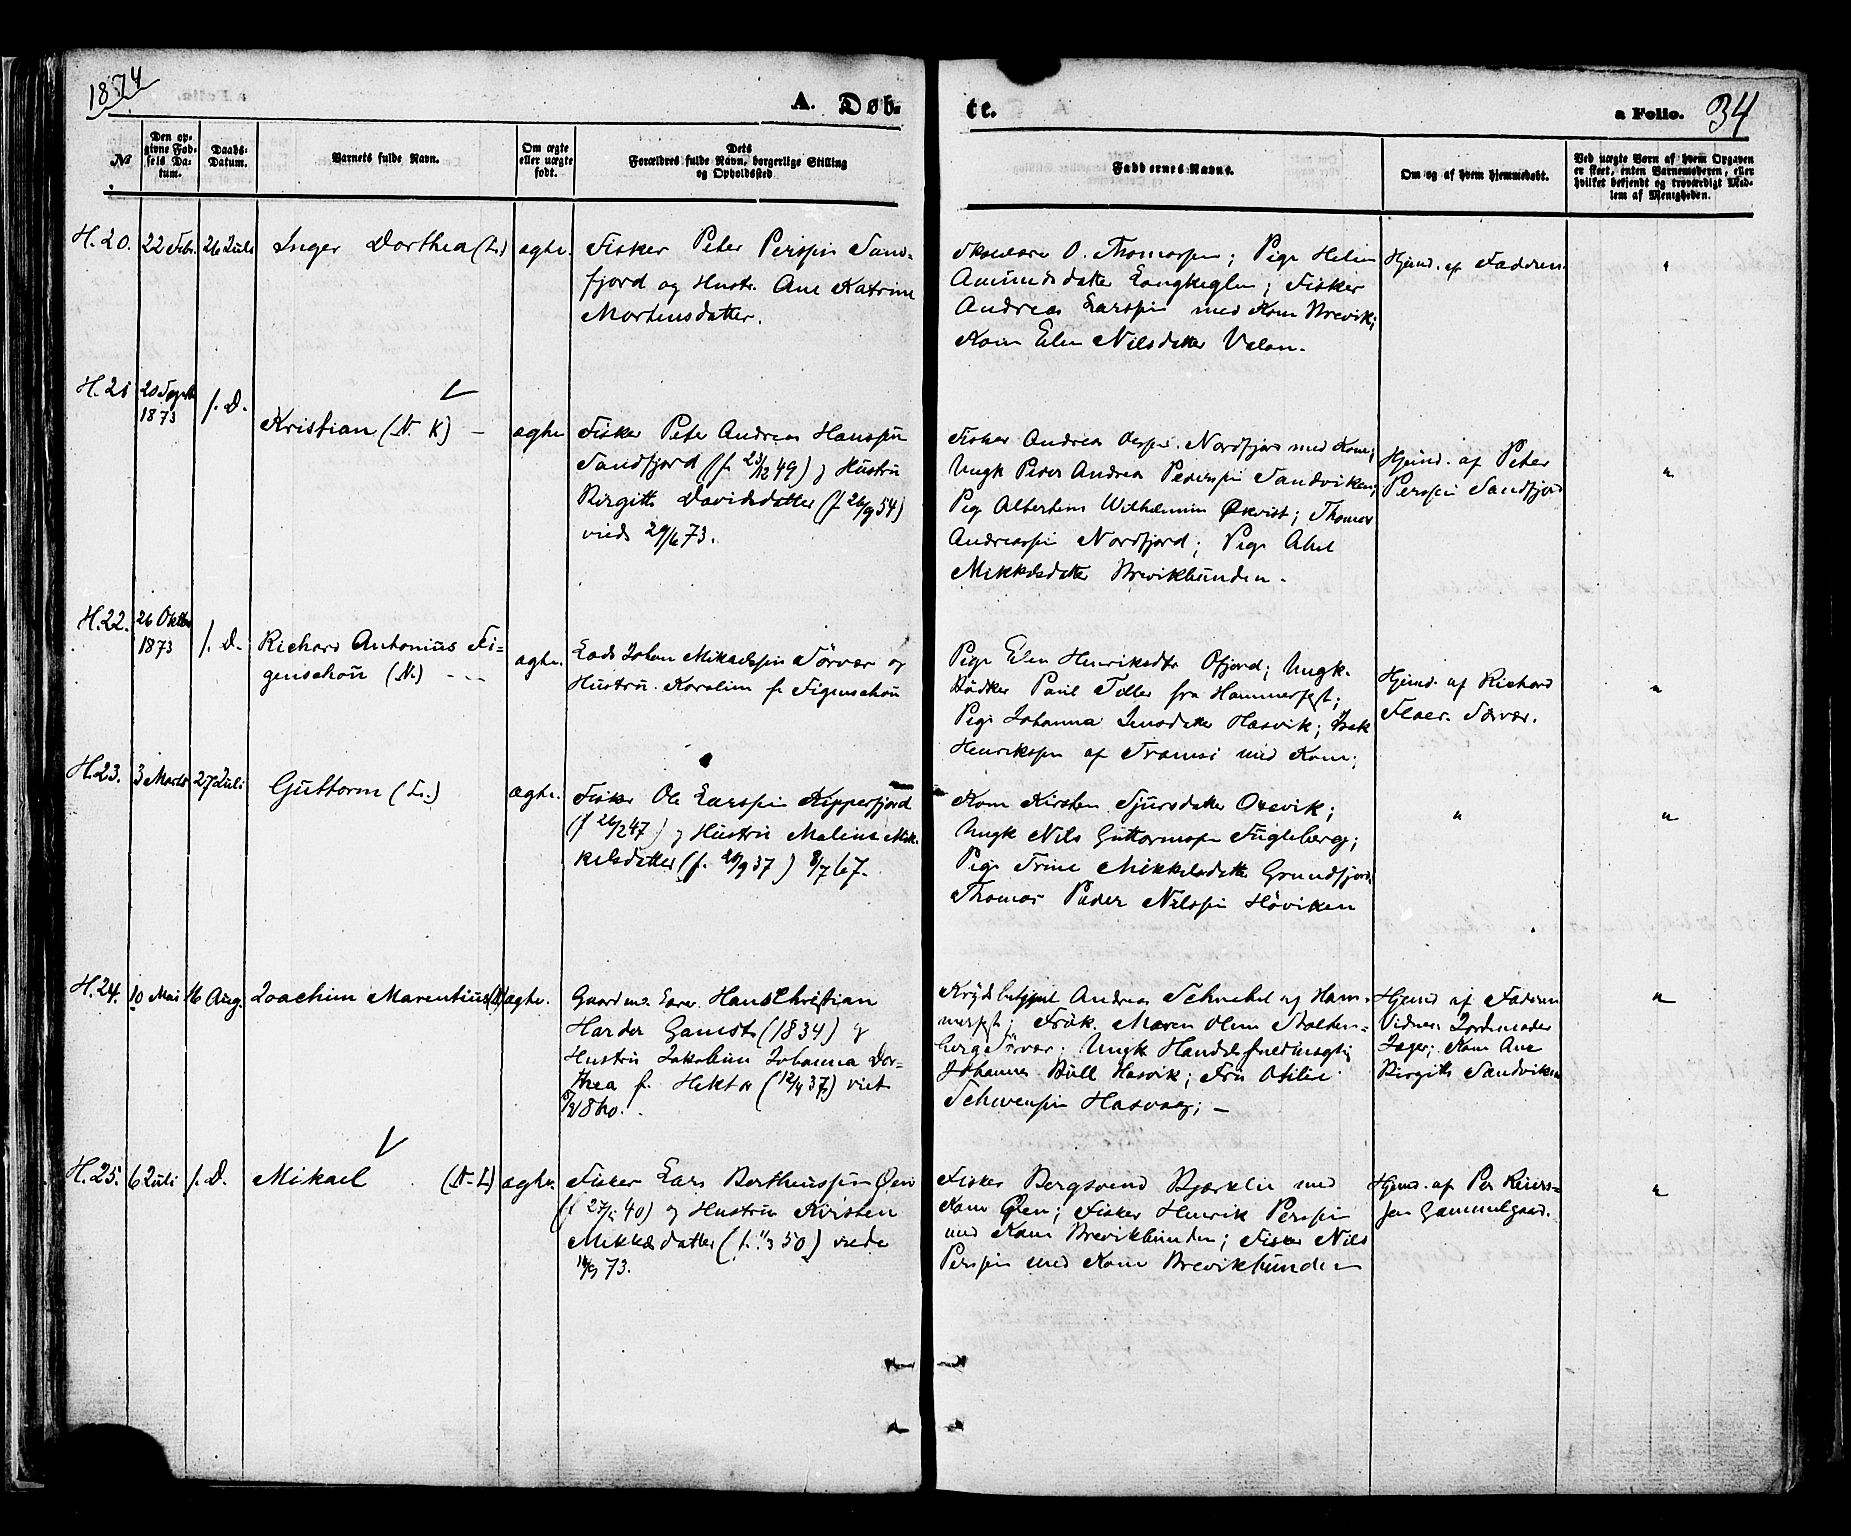 1874
A. Døb-
te.
a Folio. 34
№
Den op-
givne Fød-
sels Da-
tum.
Daabs-
Datum.
Barnets fulde Navn.
Om ægte
eller uægte
født.
Dets
Forældres fulde Navn, borgerlige Stilling
og Opholdssted
Faddernes Navne.
Om og af hvem hjemmedøbt.
Ved uægte Børn af hvem Opgaven
er skeet, enten Barnemoderen, eller
hvilket bekjendt og troværdigt Med-
lem af Menigheden.
H.20. 22 Feb. 26 Juli Inger Dorthea (L.) ægte.
Fisker Peter Perssen Sand-
fjord og Hustr. Ane Katrine
Mortensdatter.
O. Thomassen; Pige Helene
Amundsdatter; Fisker
Andreas Larssen med Kone Brevik;
Kone Elen Nilsdatter Valan.
Hjemd. af Faderen
"
H.21 20 Septb 1873 s. D. Kristian (N. K) - ægte
Fisker Peter Andreas Hanssen
Sandfjord (f. 23/12 49) og Hustru
Birgitte Davidsdatter (f 26/9 54)
viede 29/6 73.
Fisker Andreas Nordfjord med Kone;
Ungk Peder Andreas Pederssen Sandviken;
Pige Albertine Wilhelmine Økvist; Thomas
Andreassen Nordfjord; Pige Abel
Mikkelsdatter Brevikbunden.
Hjemd. af Peter
Perssen Sandfjord
"
H.22. 26 Oktbr 1873 s. D. Richard Antonius Fi-
genschou (N.) - - ægte.
Lods Johan Mikaelssen Sørvær og
Hustru Karoline f. Figenschou
Pige Elen Henriksdtr Ofjord; Ungk.
Bødker Paul Teller fra Hammerfest;
Pige Johanna Jensdatter Hasvik; Isak
Henrikssen af Tromsø med Kone;
Hjemd. af Richard
Floer. Sørvær.
"
H.23. 3 Marts 27 Juli Guttorm (L.) ægte.
Fisker Ole Larssen Kipperfjord
(f 26/2 47) og Hustru Malene Mik-
kelsdatter (f. 29/9 37) 8/7 67.
Kone Kirsten Sjursdatter Oxevik;
Ungk Nils Guttormsen Fugleberg;
Pige Trine Mikkelsdatter Grundfjord
Thomas Peder Nilssen Høviken
"
"
H.24. 10 Mai 16 Aug. Joachim Marentius (N) ægte.
Hans Christian
Harder Gamst (1834) og
Hustru Jakobine Johanna Dor-
thea f. Hektor (12/4 37) viet
1860.
Andreas Schnebel og Ham-
merfest; Frøk. Maren Olene Stolten-
berg Sørvær; Ungk Handelsfuldmægtig
Johannes Bull Hasvik; Fru Otilie
Schwenssen Hasvaag; -
Hjemd af Faderen
Vidner Jordmoder
Jæger; Kone Ane
Birgitte Sandviken
"
H.25. 6 Juli s. D. Mikael (N-L) ægte.
Fisker Lars Bertheussen Øen
(f 27/6 40) og Hustru Kirsten
Mikkelsdatter (f. 1/3 50) viede
14/9 73.
Fisker Bergsvend Bjerklie med
Kone Øen; Fisker Henrik Perssen
med Kone Brevikbunden; Fisker Nils
Perssen med Kone Brevikbunden
Hjemd. af Per Reiers-
sen Gammelgaard.
"